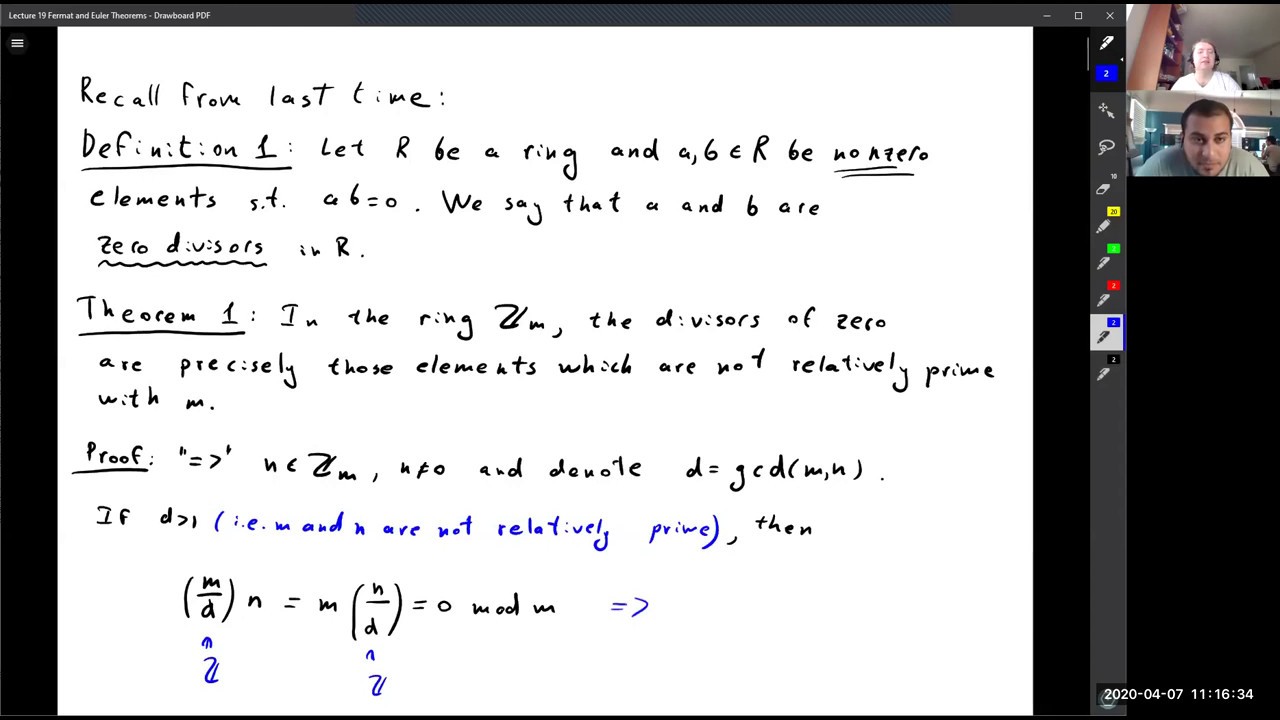 Lecture 19 Fermat and Euler Theorems - Drawboard PDF
Recall from last time:
Definition 1: Let R be a ring and a,b ∈ R be nonzero
elements s.t. ab=0. We say that a and b are
zero divisors in R.
Theorem 1: In the ring ℤm, the divisors of zero
are precisely those elements which are not relatively prime
with m.
Proof: "=>" n ∈ ℤm, n≠0 and denote d=gcd(m,n).
If d>1 (i.e. m and n are not relatively prime), then
(m/d) n = m (n/d) = 0 mod m =>
ℤ ℤ
2
10
20
2
2
2
2
2020-04-07 11:16:34